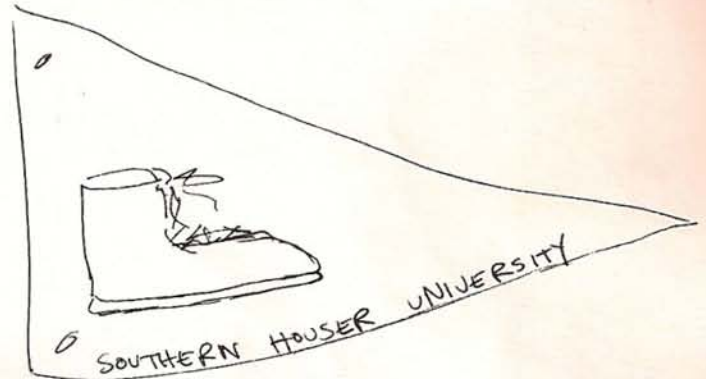 SOUTHERN HOUSER UNIVERSITY